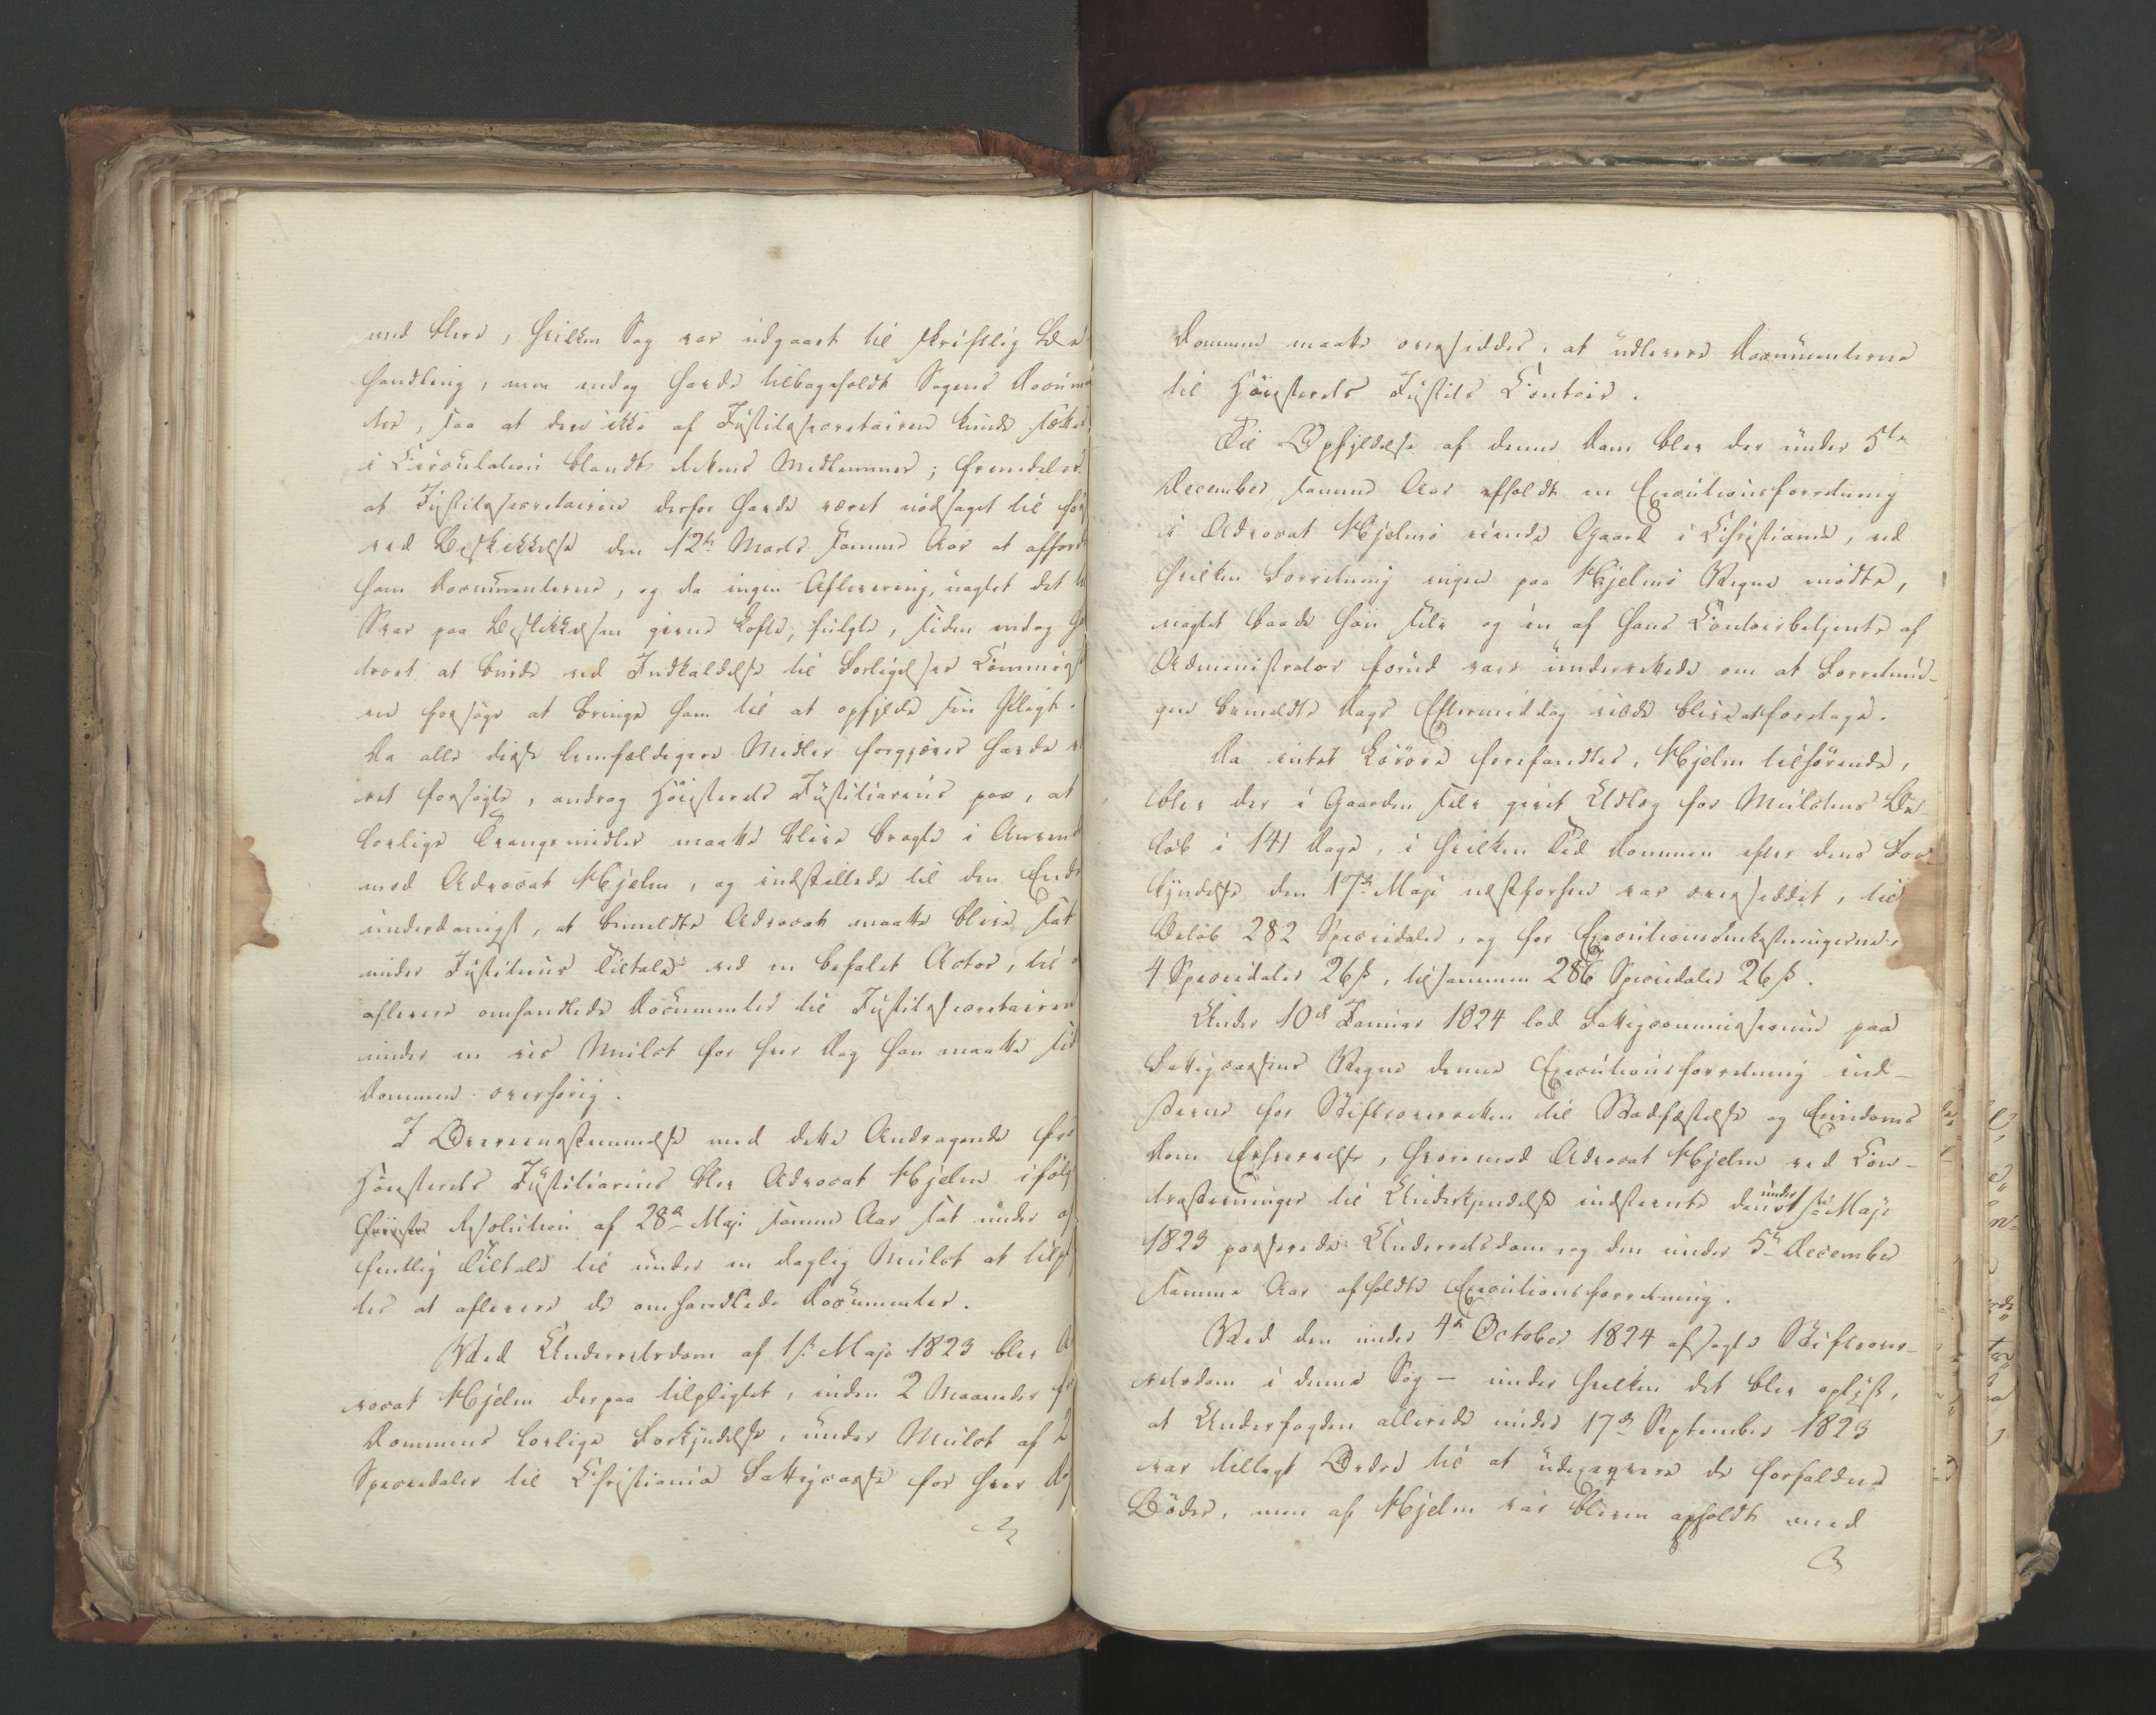 med flere, hvilken Sag var udgaaet til skriftlig Be
handling, men endog havde tilbageholdt Sagens Docum
ter, saa at den ikke af Justitssecretairen kunde sættes
i Circulation blandt Rettens Medlemmer; fremdeles
at Justitssecretairen derfor havde været nödsaget til før
ved Beskikkelse den 12te Marts samme Aar at affor
ham Documenterne, og da ingen Aflevering, uagtet det
Svar paa Beskikkelsen givne Løfte, fulgte, siden endog
at burde ved Indkaldelse til Forligelses Commis
forsöge at bringe ham til at opfylde sin Pligt.
Da alle disse lemfældigere Midler forgjæves havde
ret forsögte, androg Höiesterets Justitiarius paa, at
lovlige Tvangsmidler maatte blive bragte i Anven
mod Advocat Hjelm, og indstillede til den Ende
underdanigst, at bemeldte Advocat maatte blive sat
under Justitiens Tiltale ved en befalet Actor, til
aflevere omhandlede Documenter til Justitssecretairen
under en vis Mulct for hver Dag han maatte sid
Dommen overhörig.
I Overeensstemmelse med dette Andragende fra
Höiesterets Justitiarius blev Advocat Hjelm ifölg
Resolution af 28de Maji samme Aar sat under of
fentlig Tiltale til under en daglig Mulct at tilp
tes at aflevere de omhandlede Documenter.
Ved Underretsdom af 1ste Maji 1823 blev Ad
vocat Hjelm derpaa tilpligtet, inden 2 Maaneder
Dommens lovlige Forkyndelse, under Mulct af 2
Speciedaler til Christiania Fattigcasse for hver Dag
Dommen maatte oversiddes, at udlevere Documenterne
til Höiesterets Justits Contoir.
Til Opfyldelse af denne Dom blev der under 5te
December samme Aar afholdt en Executionsforretning
i Advocat Hjelms eiende Gaard i Christiania, ved
hvilken Forretning ingen paa Hjelms Vegne mödte,
uagtet baade han selv og en af hans Contoirbetjente af
Administrator forud vare underrettede om at Forretnin-
gen bemeldte Dags Eftermiddag vilde blive foretaget.
Da intet Lösöre forefandtes, Hjelm tilhörende,
blev der i Gaarden selv gjort Udlæg for Mulctens Be-
löb i 141 Dage, i hvilken Tid Dommen efter dens For-
kyndelse den 17de Maji næstforhen var oversiddet, til
Beløb 282 Speciedaler, og for Executionsomkostningerne,
4 Speciedaler 26 ß, tilsammen 286 Speciedaler 26 ß.
Under 10de Januar 1824 lod Fattigcommissionen paa
Fattigcassens Vegne denne Executionsforretning ind-
stævne for Stiftsoverretten til Stadfæstelse og Eiendoms
Doms Erhvervelse, hvorimod Advocat Hjelm ved Con-
trastævninger til Underkjendelse indstævnte den under 1ste Maji
1823 passerede Underretsdom og den under 5te December
samme Aar afholdte Executionsforretning.
Ved den under 4de October 1824 afsagte Stiftsover-
retsdom i denne Sag – under hvilken det blev oplyst,
at Underfogden allerede under 17de September 1823
var tillagt Ordre til at udexeqvere de forfaldne
Böder, men af Hjelm var bleven opholdt med